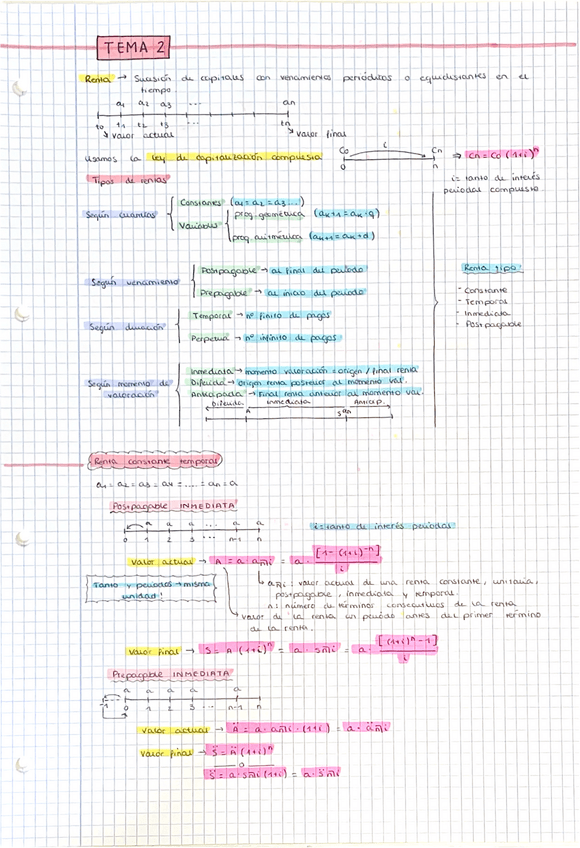 TEMA 2
Renta → Sucesión de capitales con vencimientos periódicos o equidistantes en el
tiempo
a1 a2 a3 ... an
t0 t1 t2 t3 tn
valor actual valor final
Usamos la ley de capitalización compuesta C0 i Cn ⇒ Cn = C0 (1+i)^n
0 n
i = tanto de interés
periodal compuesto
Tipos de rentas
Según cuantías
Constantes (a1 = a2 = a3...)
Variables
prog. geométrica (aK+1 = aK · q)
prog. aritmética (aK+1 = aK + d)
Según vencimiento
Postpagable → al final del período
Prepagable → al inicio del período
Según duración
Temporal → nº finito de pagos
Perpetua → nº infinito de pagos
Según momento de
valoración
Inmediata → momento valoración = origen / final renta
Diferida → origen renta posterior al momento val.
Anticipada → Final renta anterior al momento val.
Diferida Inmediata Anticip.
A San
Renta tipo:
- Constante
- Temporal
- Inmediata
- Postpagable
Renta constante temporal
a1 = a2 = a3 = a4 = .... = an = a
Postpagable INMEDIATA
a a a ... a a
0 1 2 3 n-1 n
i = tanto de interés periodal
Valor actual → A = a · an¬i = a · [1 - (1+i)^-n] / i
Tanto y períodos → misma
unidad!
an¬i : valor actual de una renta constante, unitaria,
postpagable, inmediata y temporal.
n : número de términos consecutivos de la renta
valor de la renta un período antes del primer término
de la renta.
Valor final → S = A (1+i)^n = a · sn¬i = a · [(1+i)^n - 1] / i
Prepagable INMEDIATA
a a a a a
-1 0 1 2 3 ... n-1 n
Valor actual → Ä = a · an¬i · (1+i) = a · än¬i
Valor final → S̈ = Ä (1+i)^n
o
S̈ = a · sn¬i (1+i) = a · s̈n¬i